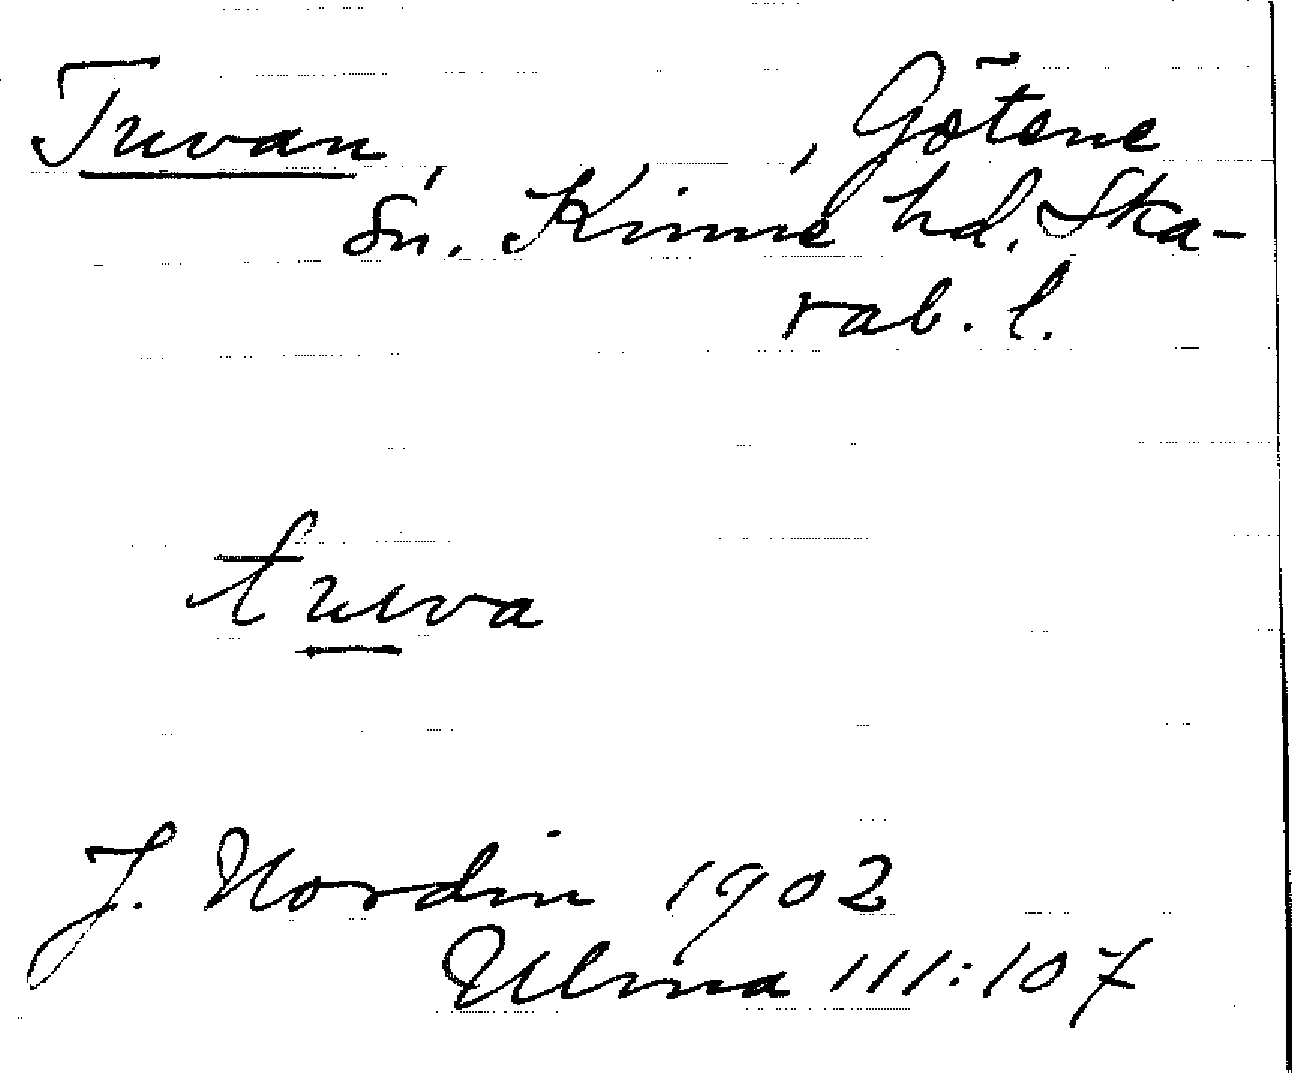 Tuvan, , Götene
sn. Kinne hd. Ska-
rab. l.
tuva
J. Nordin 1902
Ulma 111:107